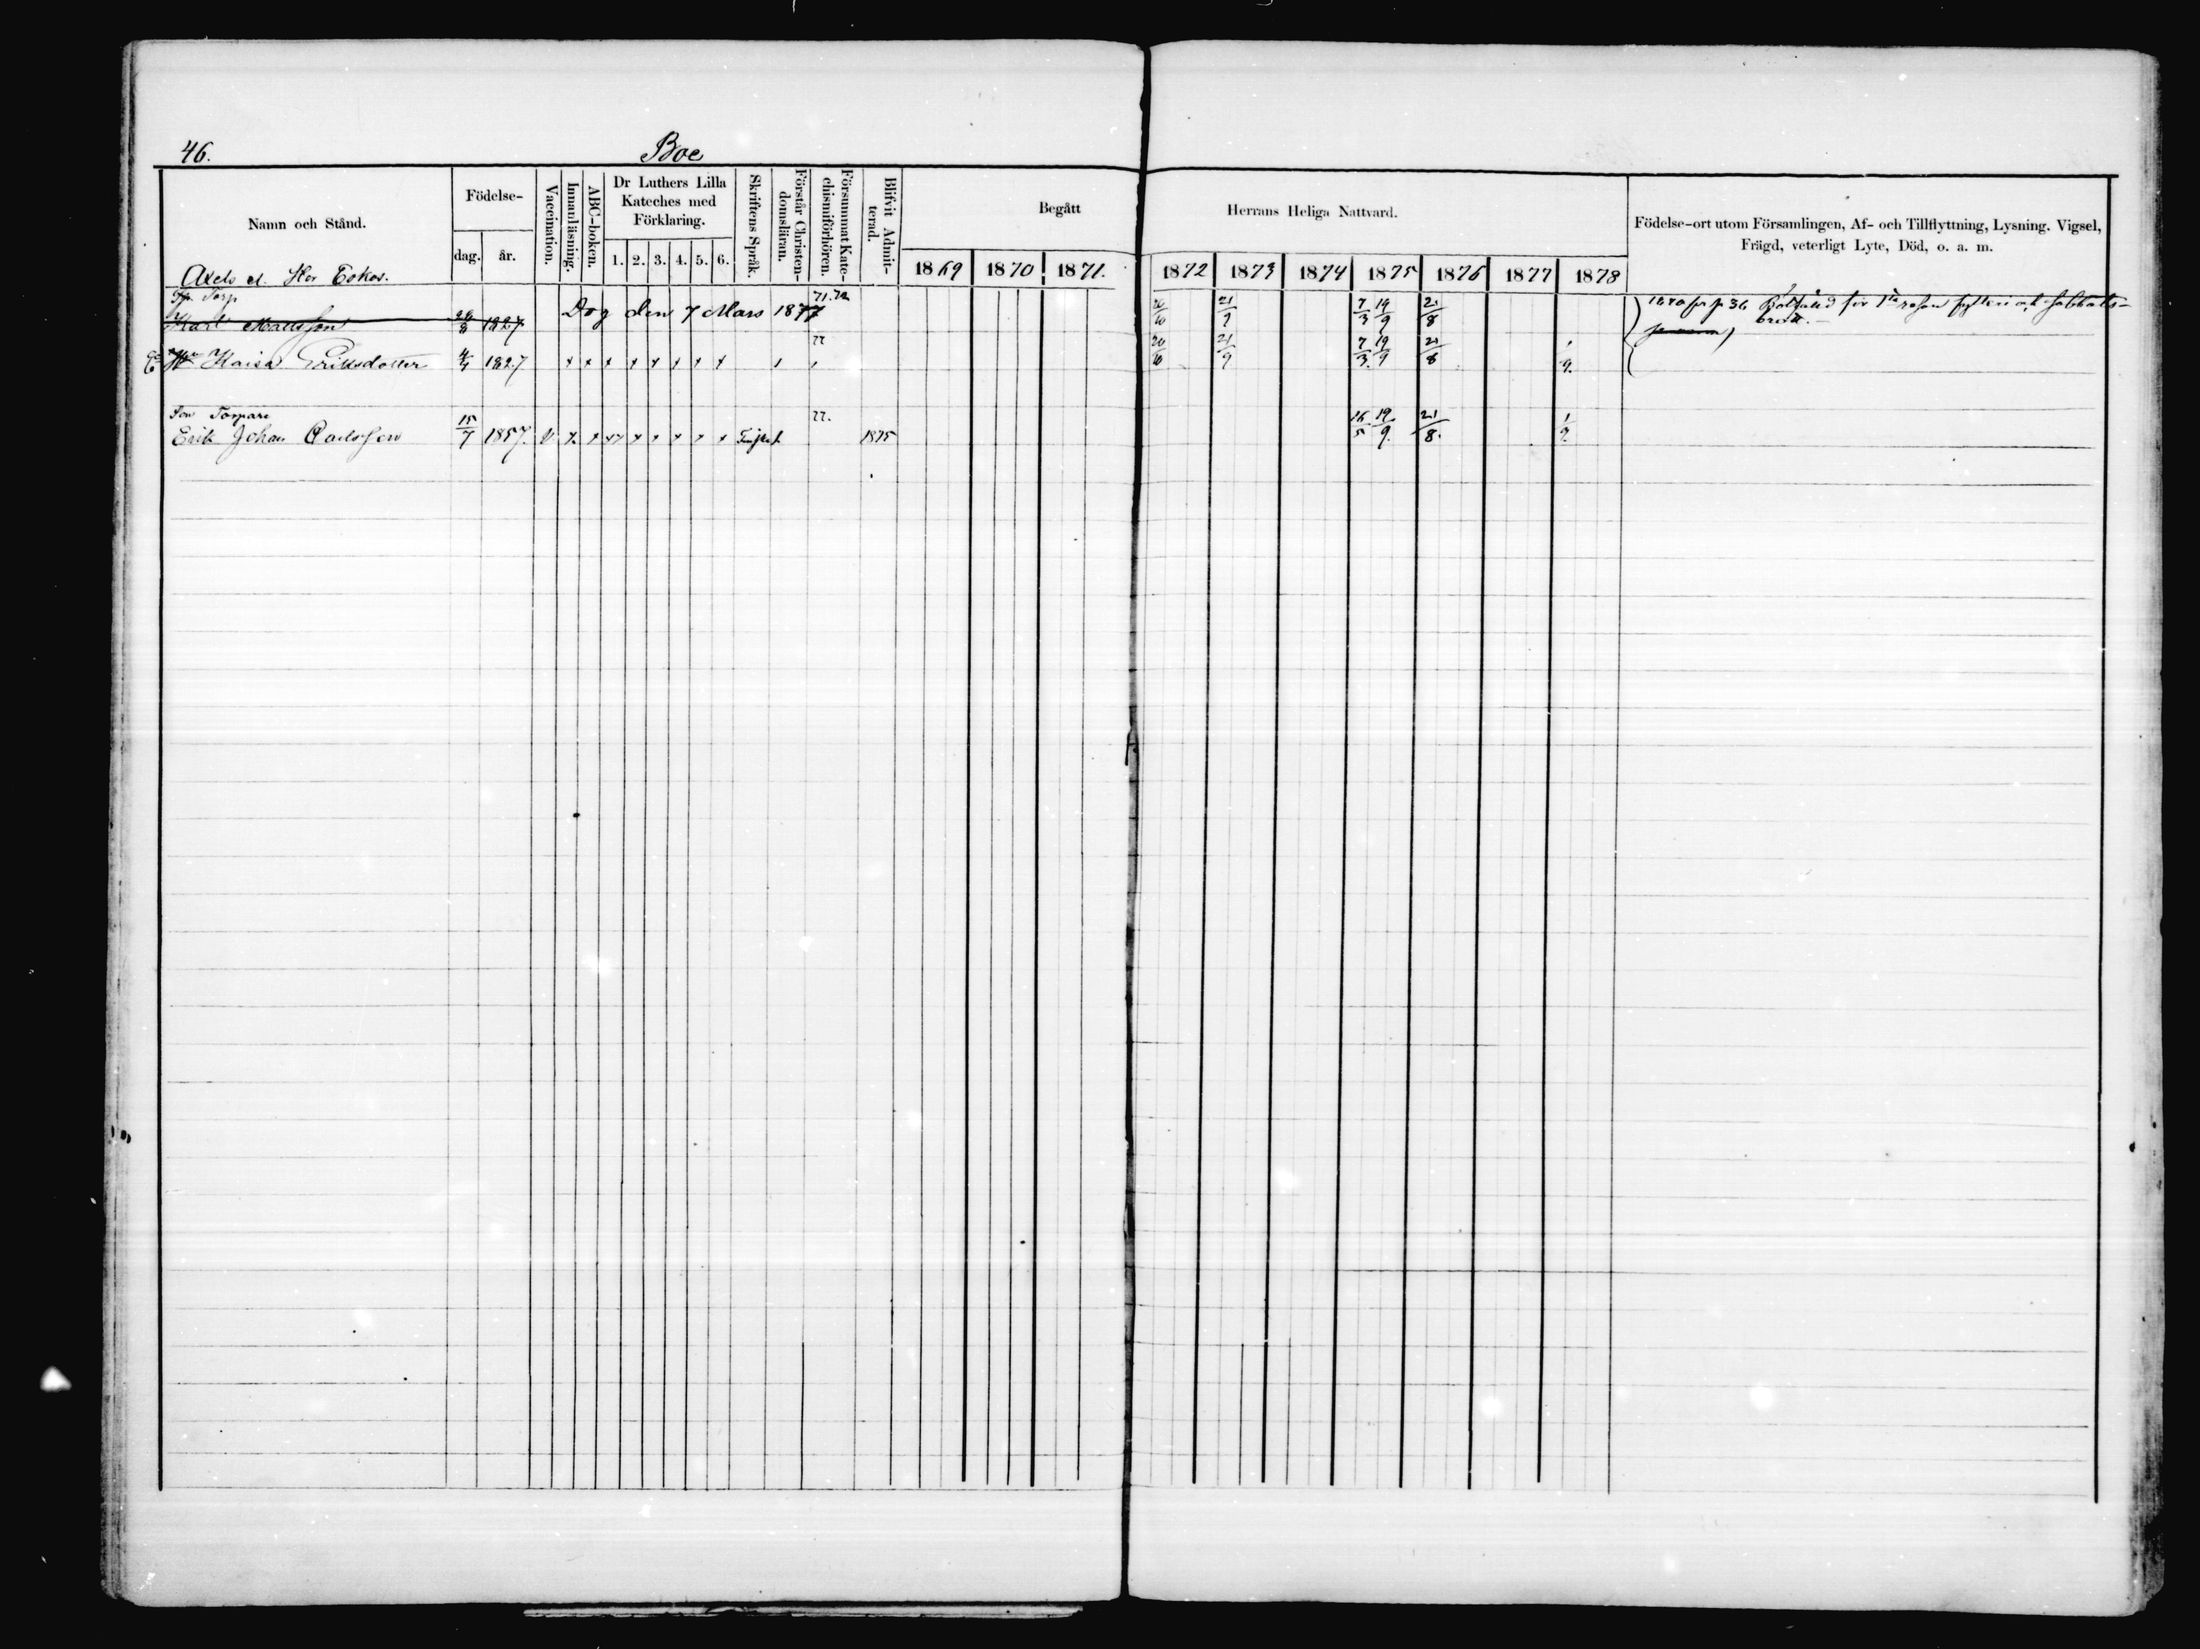 46.
Boe
Namn och Stånd.
Födelse-
dag.
år.
Vaccination.
Innanläsning.
ABC-boken.
Dr Luthers Lilla
Kateches med
Förklaring.
1. 2. 3. 4. 5. 6.
Skriftens Språk.
Förstår Christen-
domsläran.
Försummat Kate-
chismiförhören.
Blifvit Admit-
terad.
Begått
Herrans Heliga Nattvard.
1869 1870 1871.
1872 1873 1874 1875 1876 1877 1878
Födelse-ort utom Församlingen, Af- och Tillflyttning, Lysning. Vigsel,
Frägd, veterligt Lyte, Död, o. a. m.
Axels el. Hor Eskos.
Torp 71. 72
Karl Mattsson 1827 Dog den 7 Mars 1877 21/9 7/3 19/9 21/8 1870 fr p 36
77
Kaisa Eriksdotter 4/4 1827 20/10 21/9 7/3 19/9 21/8 1/9
Son Torpare 77.
Erik Johan Carlsson 15/7 1857. v x x x x x x x 1875 16/5 19/9 21/8 1/9